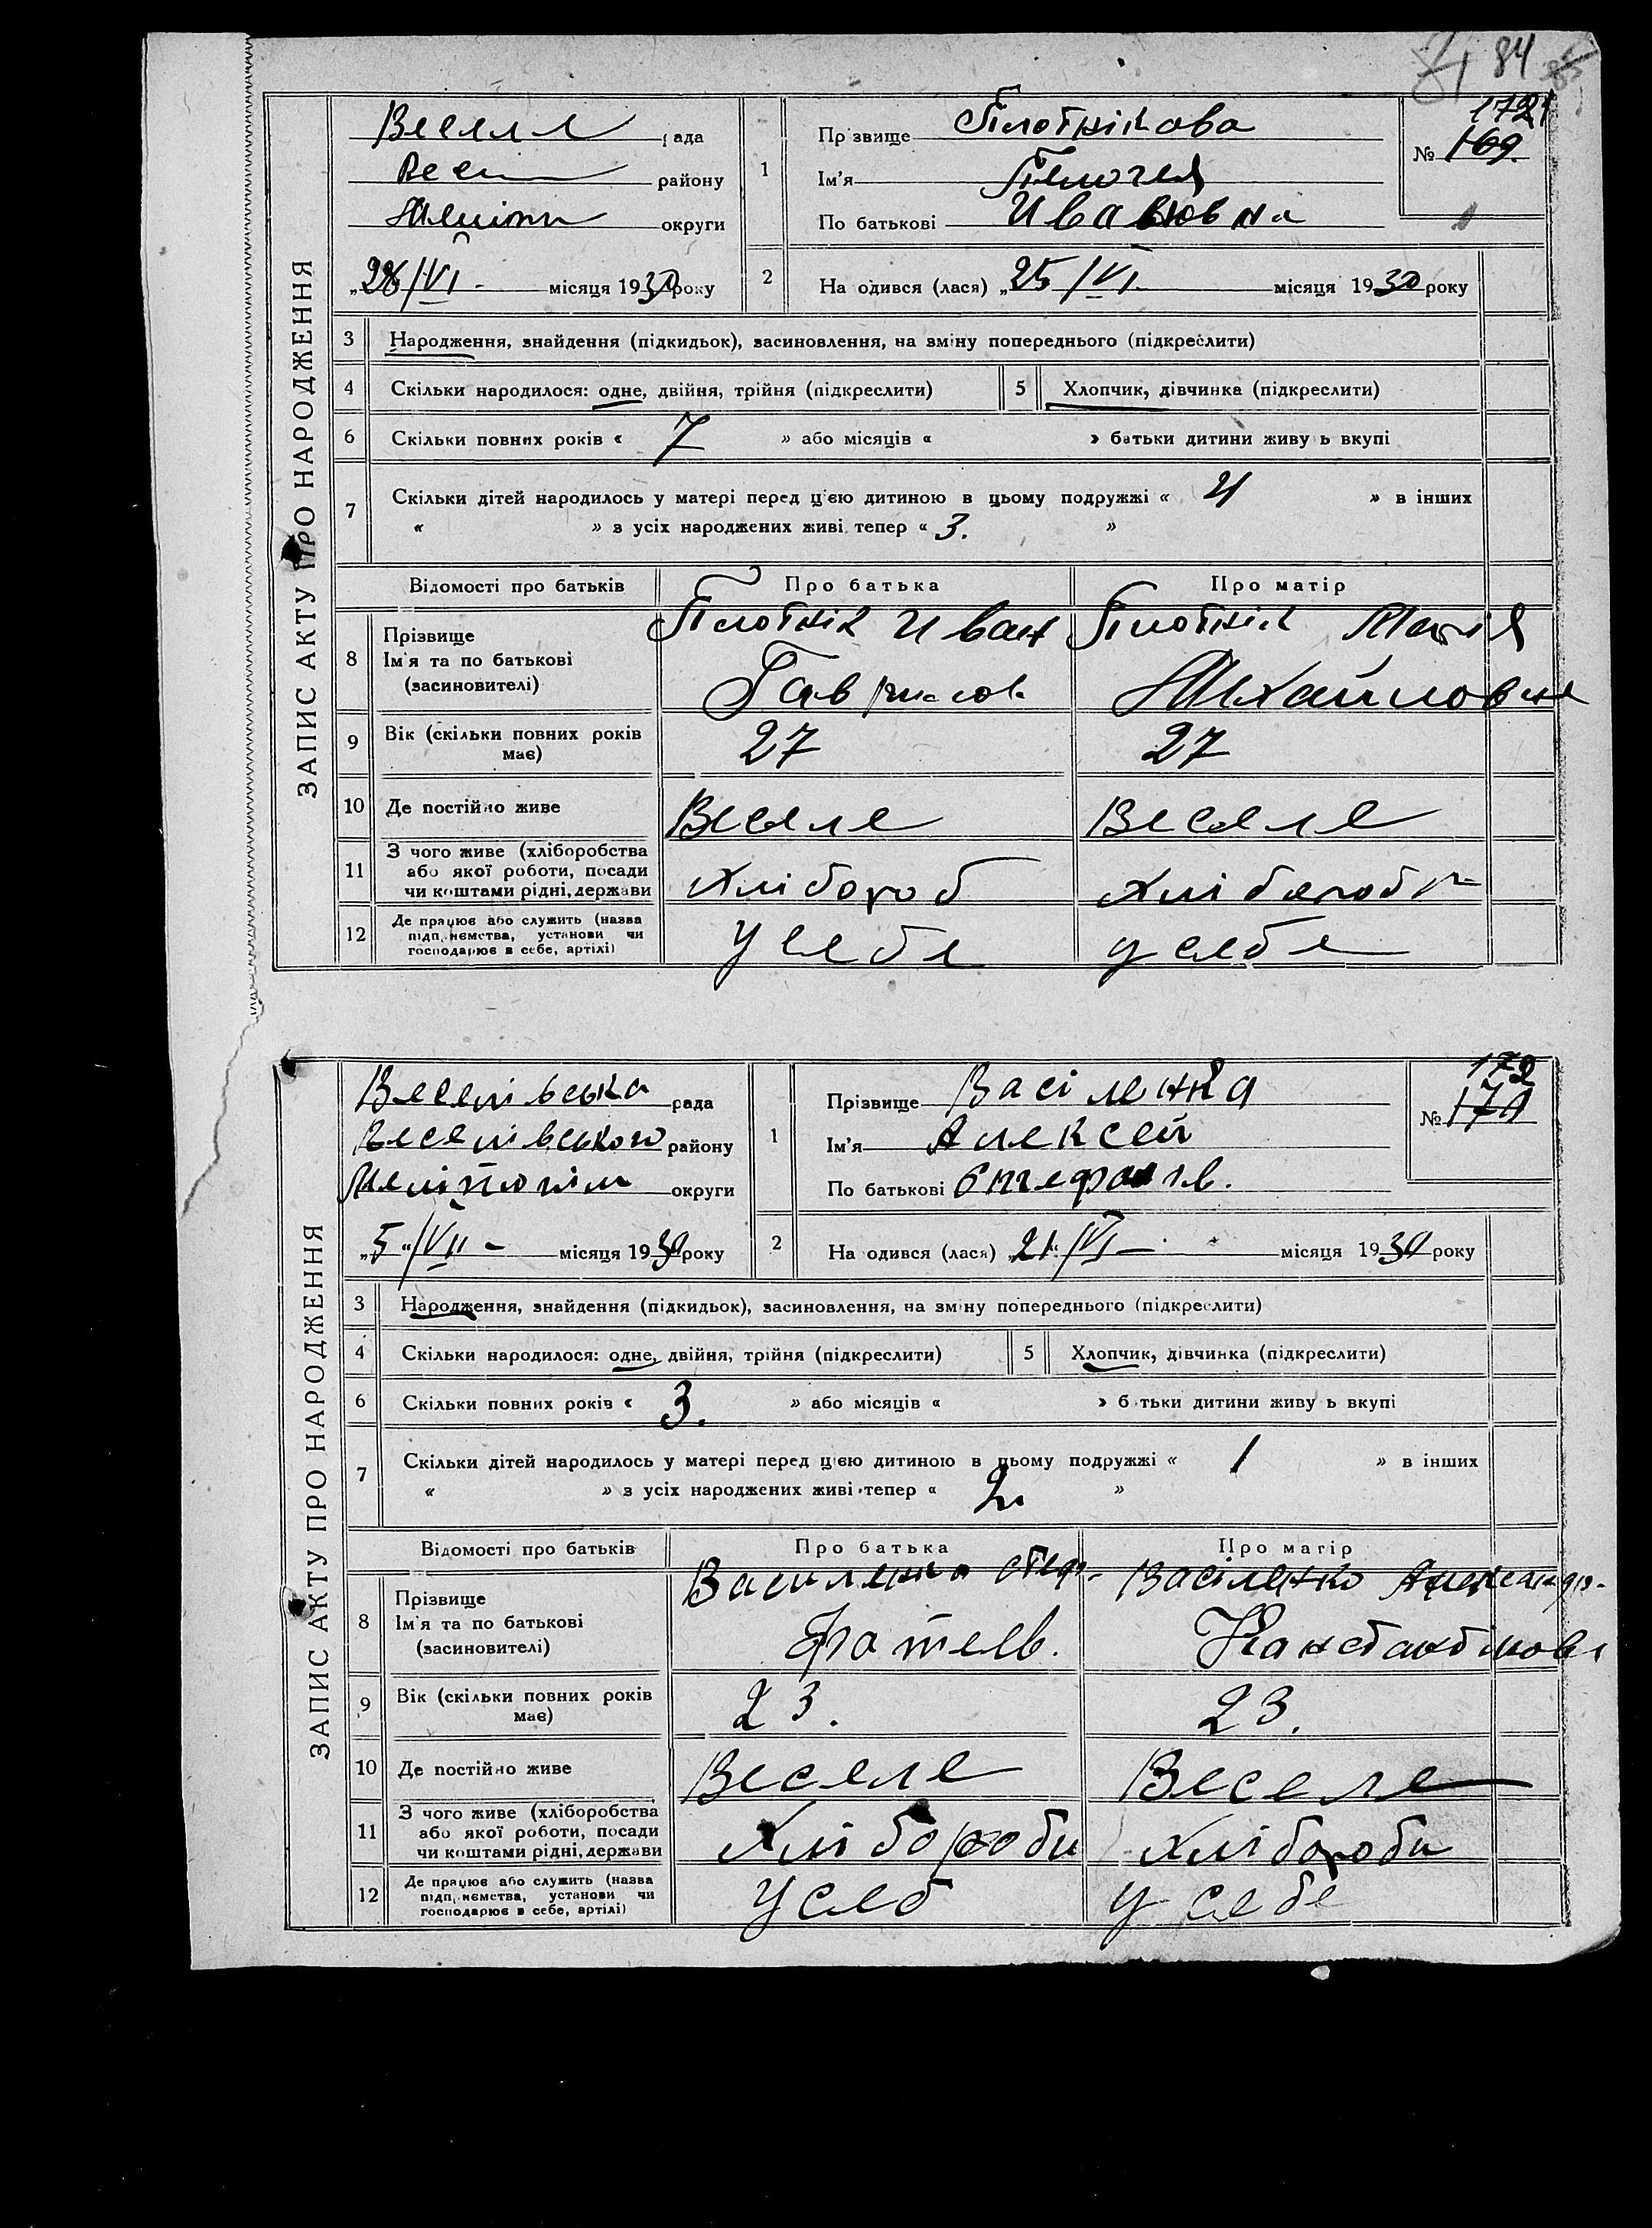 84
ЗАПИС АКТУ ПРО НАРОДЖЕННЯ
Веселе рада
Весе района
округи
"28/VI - місяця 1930 року
1
Прізвище Плотнікова
Ім'я
По батькові Ивановна
№ 169
2
Народився (лася) "25/VI місяця 1930 року
3 Народження, знайдення (підкидьок), засиновлення, на зміну попереднього (підкреслити)
4 Скільки народилося: одне, двійня, трійня (підкреслити)
5 Хлопчик, дівчинка (підкреслити)
6 Скільки повних років « 7 » або місяців « » батьки дитини живуть вкупі
7 Скільки дітей народилось у матері перед цією дитиною в цьому подружжі « » в інших
« » з усіх народжених живі тепер « 3. »
Відомості про батьків Про батька Про матір
8 Прізвище Ім'я та по батькові (засиновителі)
Плотнік Иван Плотнік Марія
Гаврилов Михайловна
9 Вік (скільки повних років має) 27 27
10 Де постійно живе Веселе Веселе
11 З чого живе (хліборобства або якої роботи, посади чи коштами рідні, держави
Хлібороб
12 Де працює або служить (назва підприємства, установи чи господарює в себе, артілі)
У себе у себе
ЗАПИС АКТУ ПРО НАРОДЖЕННЯ
Веселівська рада
Веселівського району
округи
"5"/VII - місяця 1930 року
1
Прізвище Васіленко
Ім'я Алексей
По батькові Стефанов.
№ 170
172
2
Народився (лася) "21"/VI - місяця 1930 року
3 Народження, знайдення (підкидьок), засиновлення, на зміну попереднього (підкреслити)
4 Скільки народилося: одне, двійня, трійня (підкреслити)
5 Хлопчик, дівчинка (підкреслити)
6 Скільки повних років « 3. » або місяців « » батьки дитини живуть вкупі
7 Скільки дітей народилось у матері перед цією дитиною в цьому подружжі « 1 » в інших
« » з усіх народжених живі тепер « 2. »
Відомості про батьків Про батька Про матір
8 Прізвище Ім'я та по батькові (засиновителі)
Василенко Стеф- Васіленко Александр-
Константінов
9 Вік (скільки повних років має) 23. 23.
10 Де постійно живе Веселе Веселе
11 З чого живе (хліборобства або якої роботи, посади чи коштами рідні, держави
Хлібороби хлібороби
12 Де працює або служить (назва підприємства, установи чи господарює в себе, артілі)
У себ у себе